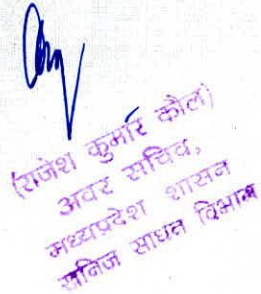 (राजेश कुमार कौल)
अवर सचिव,
मध्यप्रदेश शासन
खनिज साधन विभाग